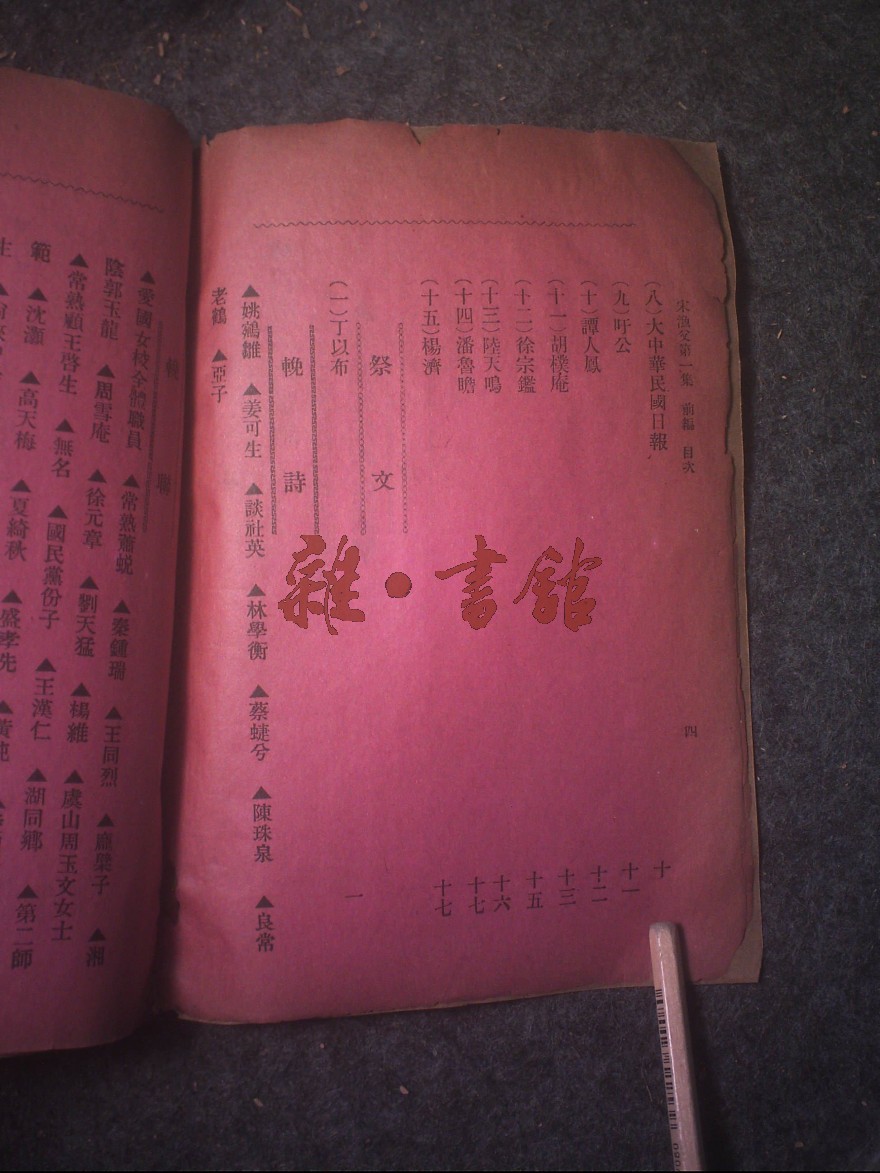 宋漁父第一集 前編 目次 四
(八)大中華民國日報 十
(九)吁公 十一
(十)譚人鳳 十二
(十一)胡樸庵 十三
(十二)徐宗鑑 十五
(十三)陸天鳴 十六
(十四)潘魯瞻 十七
(十五)楊濟 十七
祭文
(一)丁以布 一
輓詩
▲姚鵷雛 ▲姜可生 ▲談社英 ▲林學衡 ▲蔡蜨兮 ▲陳珠泉 ▲良常
老鶴 ▲亞子
輓聯
▲愛國女校全體職員 ▲常熟蕭蛻 ▲秦鍾瑞 ▲王同烈 ▲龐檗子 ▲湘
陰郭玉龍 ▲周雪庵 ▲徐元章 ▲劉天猛 ▲楊維 ▲虞山周玉文女士
▲常熟顧王啓生 ▲無名 ▲國民黨份子 ▲王漢仁 ▲湖同鄉 ▲第二師
範 ▲沈灝 ▲高天梅 ▲夏綺秋 ▲盛孝先 ▲黃
雜·書館